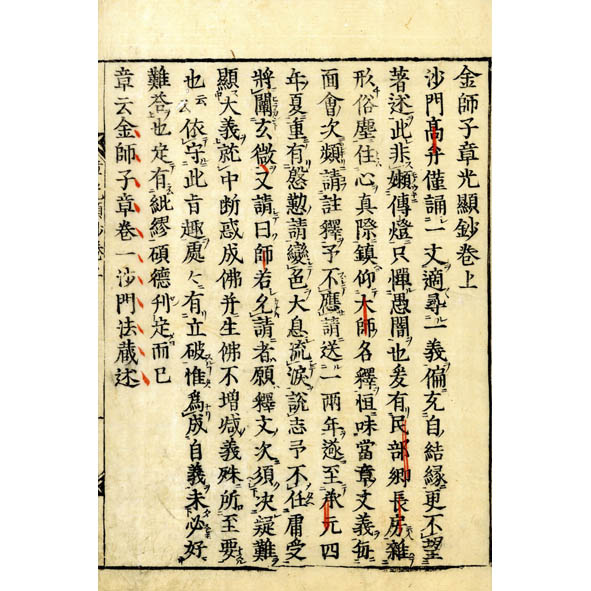 金師子章光顯鈔卷上
沙門高弁僅誦一文適尋一義偏充自結緣更不望
著述此非嬾傳燈只憚愚闇也爰有民部卿長房雜
形俗塵住心真際鎮仰大師名釋恒味當章文義每
面會次頻請註釋予不應請送一兩年遂至承元四
年夏重有慇懃請變色大息流淚說志予不任庸受
將闡玄微又請曰師若允請者願釋文次須決疑難
顯大義就中断惑成佛并生佛不增減義殊所至要
也云依守此旨趣處々有立破惟為成自義未必好
難答也定有紕繆碩德刋定而已
章云金師子章卷一沙門法藏述